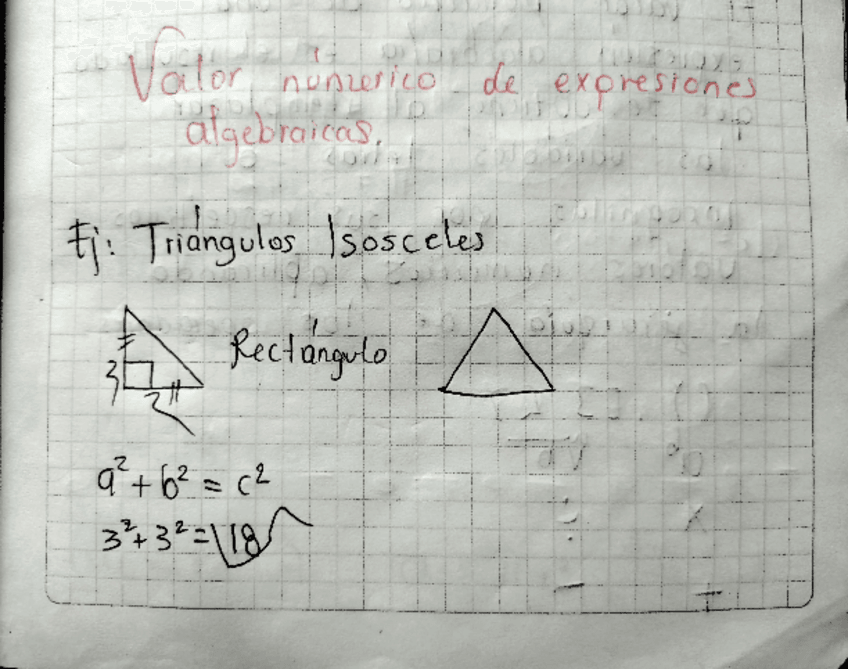 Valor númerico de expresiones
algebraicas.
Ej: Triángulos Isosceles
Rectángulo
3
a² + b² = c²
3² + 3² = √18